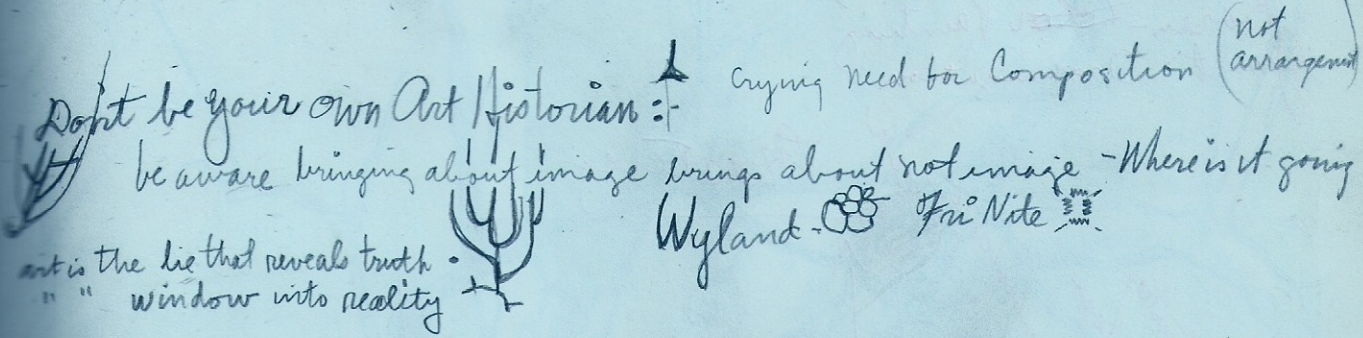 Don't be your own Art Historian :
crying need for Composition (not arrangement)
be aware bringing about image brings about not image - Where is it going
Wyland - Fri Nite
art is the lie that reveals truth .
" " window into reality